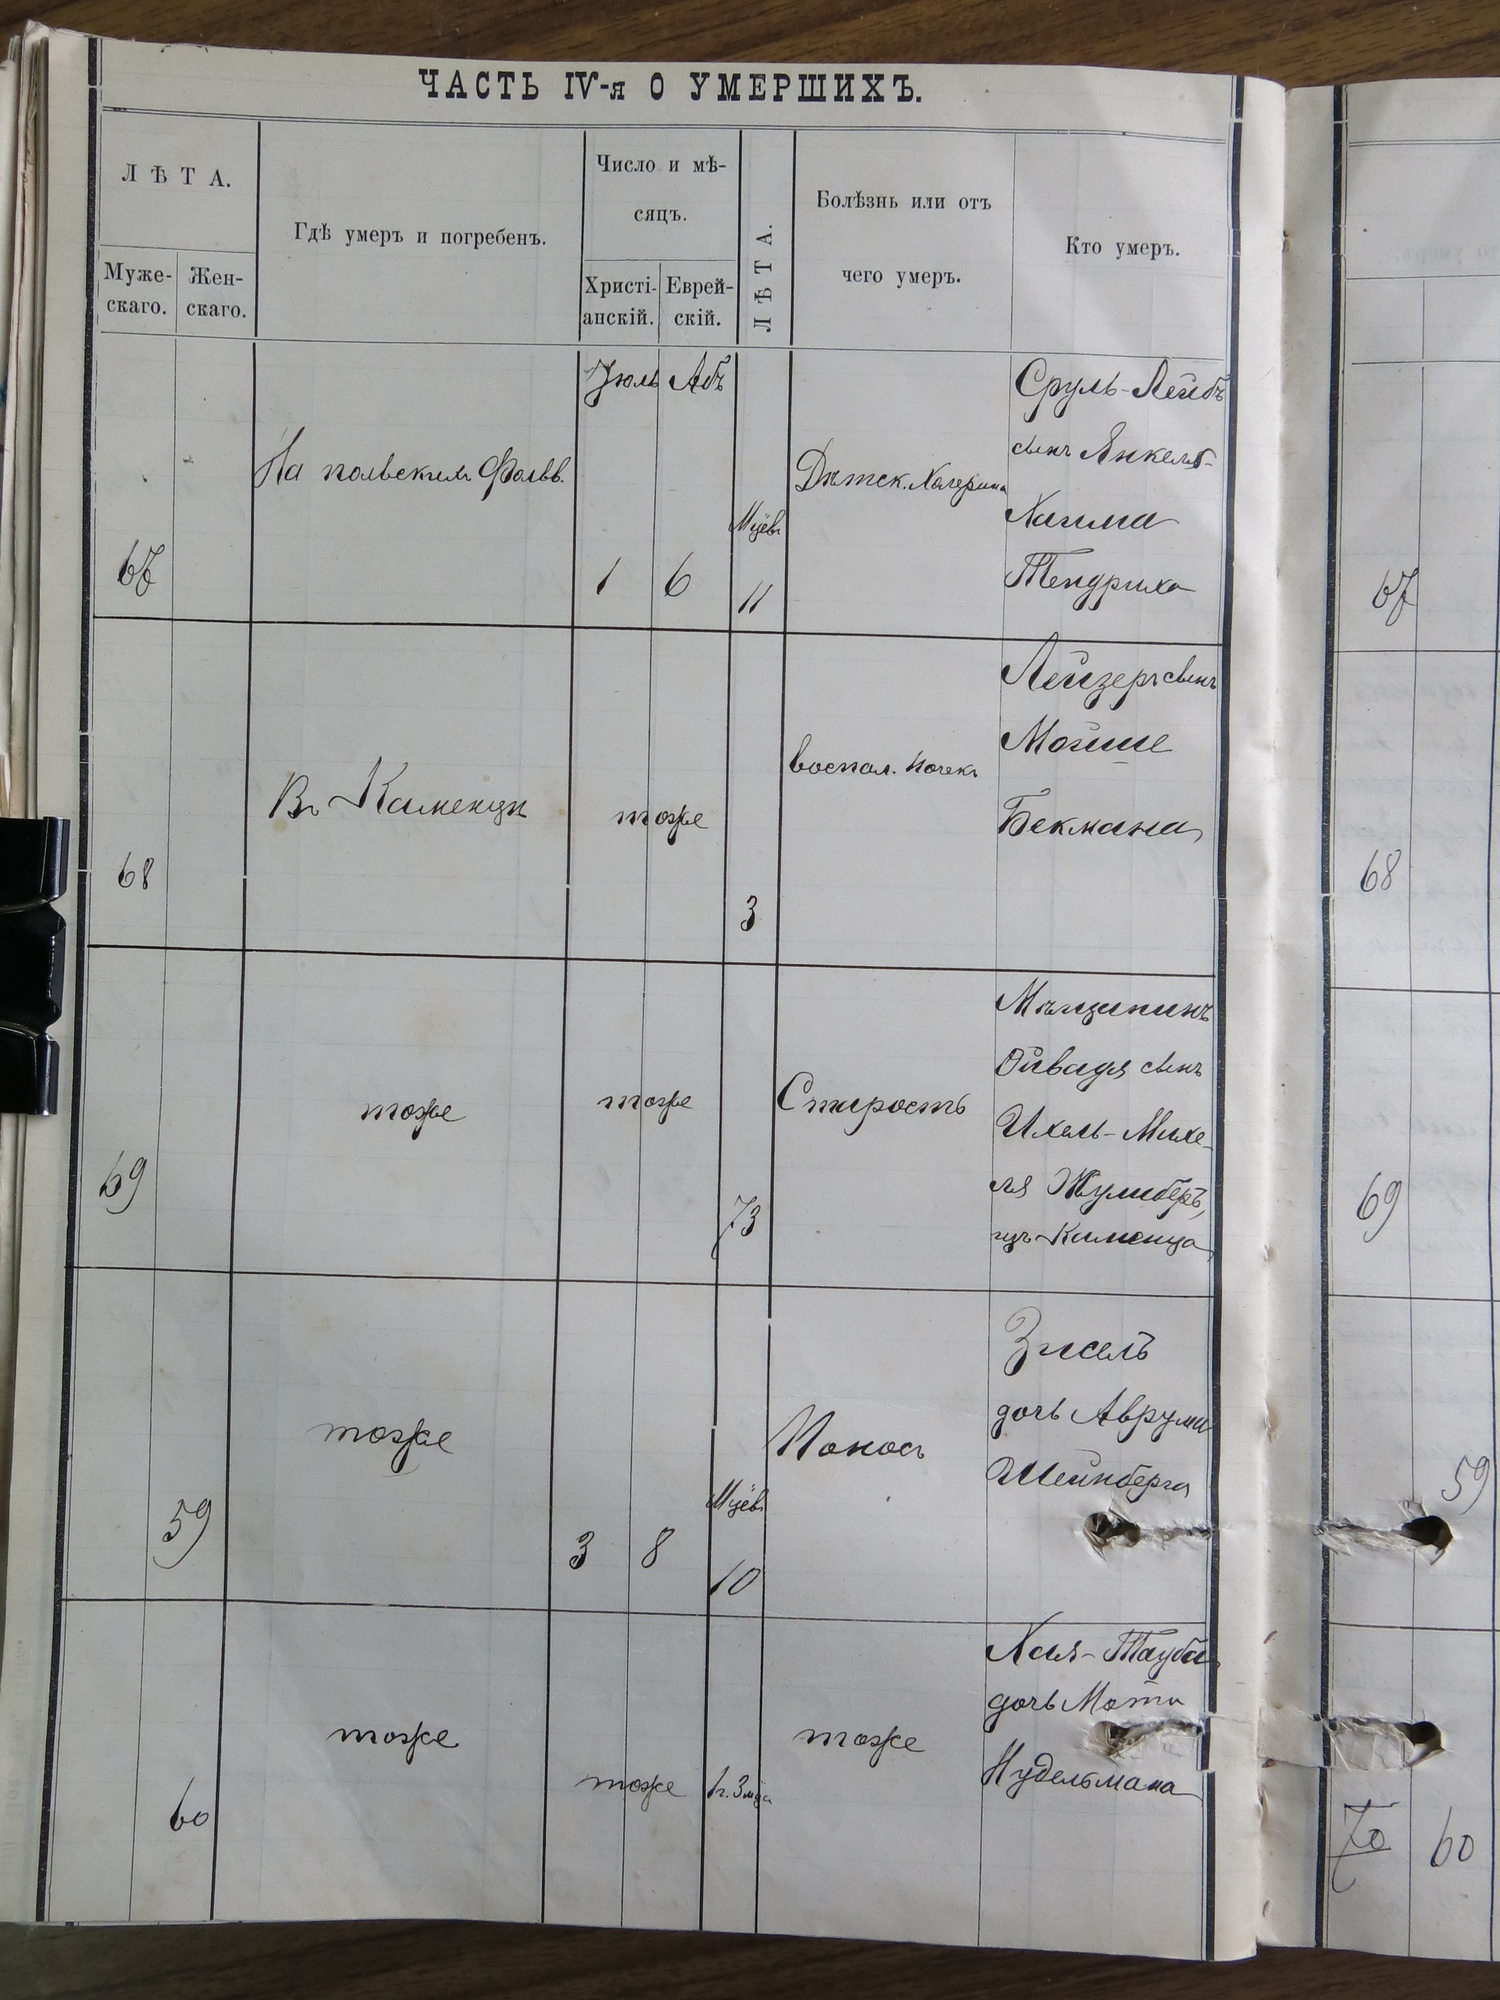 ЧАСТЬ IV-я О УМЕРШИХЪ.
ЛѢТА.
Муже-
скаго.
Жен-
скаго.
Гдѣ умеръ и погребенъ.
Число и мѣ-
сяцъ.
Христі-
анскій.
Еврей-
скій.
ЛѢТА.
Болѣзнь или отъ
чего умеръ.
Кто умеръ.
67
На польскихъ Фольв.
Іюль
1
Абъ
6
Мцевъ
11
Дѣтск. Холерина
Сруль-Лейбъ
сынъ Янкель-
Хаима
Тендриха
67
68
Въ Каменцѣ
тоже
3
воспал. почекъ
Лейзеръ сынъ
Мойше
Бекмана
68
69
тоже
тоже
73
Старость
Мѣщанинъ
Ойвадя сынъ
Ихель-Михе-
ля
изъ Каменца
69
59
тоже
3
8
Мцев
10
Поносъ
Зисель
дочь Аврума
Шейнберга
59
60
тоже
тоже
1 г. 3 мца
тоже
Хая-Тауба
дочь Моти
Нудельмана
70
60